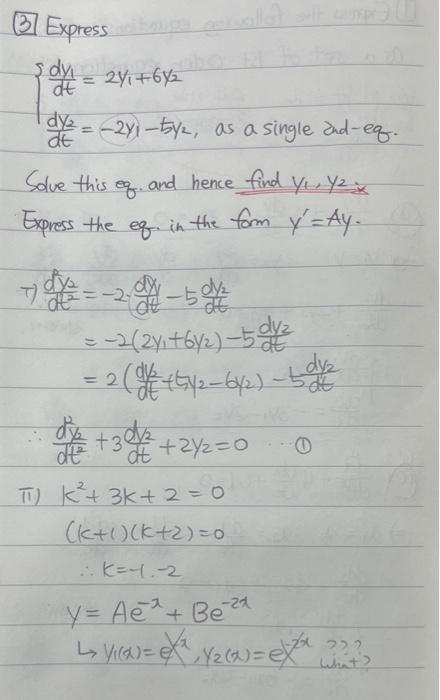 ③ Express
{ dy₁/dt = 2y₁+6y₂
dy₂/dt = -2y₁-5y₂, as a single 2nd-eq.
Solve this eq. and hence find y₁, y₂.
Express the eq. in the form y'=Ay.
I) d²y₂/dt² = -2·dy₁/dt -5 dy₂/dt
= -2(2y₁+6y₂)-5 dy₂/dt
= 2(dy₂/dt+5y₂-6y₂)-5 dy₂/dt
∴ d²y₂/dt² +3 dy₂/dt +2y₂=0 ...①
II) k²+3k+2=0
(k+1)(k+2)=0
∴ k=-1,-2
y=Ae⁻ˣ+Be⁻²ˣ
↳ y₁(x)=e⁻ˣ, y₂(x)=e⁻²ˣ ???
what?